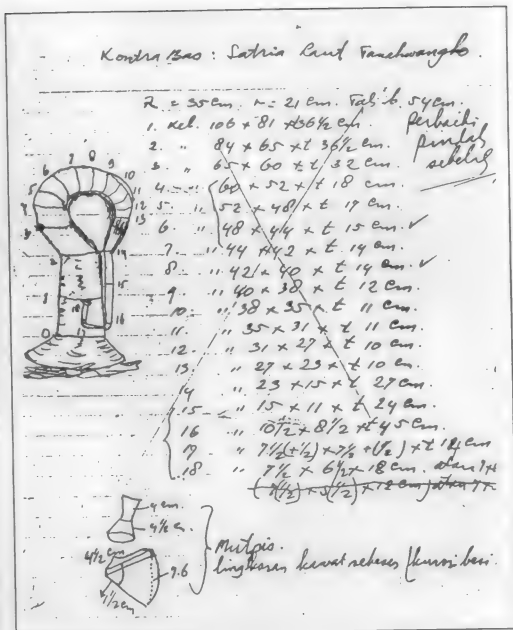 Kontra Bas : Satria Laut
R = 35 cm. r = 21 cm. 54 cm.
1. kel. 106 + 81 + t 36 1/2 cm.
2. " 84 x 65 x t 36 1/2 cm.
3. " 65 x 60 x t 32 cm.
4. " 60 x 52 x t 18 cm.
5. " 52 x 48 x t 17 cm.
6. " 48 x 44 x t 15 cm. ✓
7. " 44 x 42 x t 14 cm.
8. " 42 x 40 x t 14 cm. ✓
9. " 40 x 38 x t 12 cm.
10. " 38 x 35 x t 11 cm.
11. " 35 x 31 x t 11 cm.
12. " 31 x 27 x t 10 cm.
13. " 27 x 23 x t 10 cm.
14 " 23 x 15 x t 27 cm.
15 " 15 x 11 x t 24 cm.
16 " 10 1/2 x 8 1/2 x t 45 cm.
17 " 7 1/2 (+1/2) x 7 1/2 + (1/2) x t 12 cm
18 " 7 1/2 x 6 1/2 x 18 cm.
Perbaiki
pindah
sebelah
6 7 8 9 10
5 11
4 12
3 13
2 14
15
1 18 16
0 17
4 cm.
4 1/2 c.
4 1/2 cm
9.6
1 1/2 cm
Mulpis.
lingkaran kawat sebesar